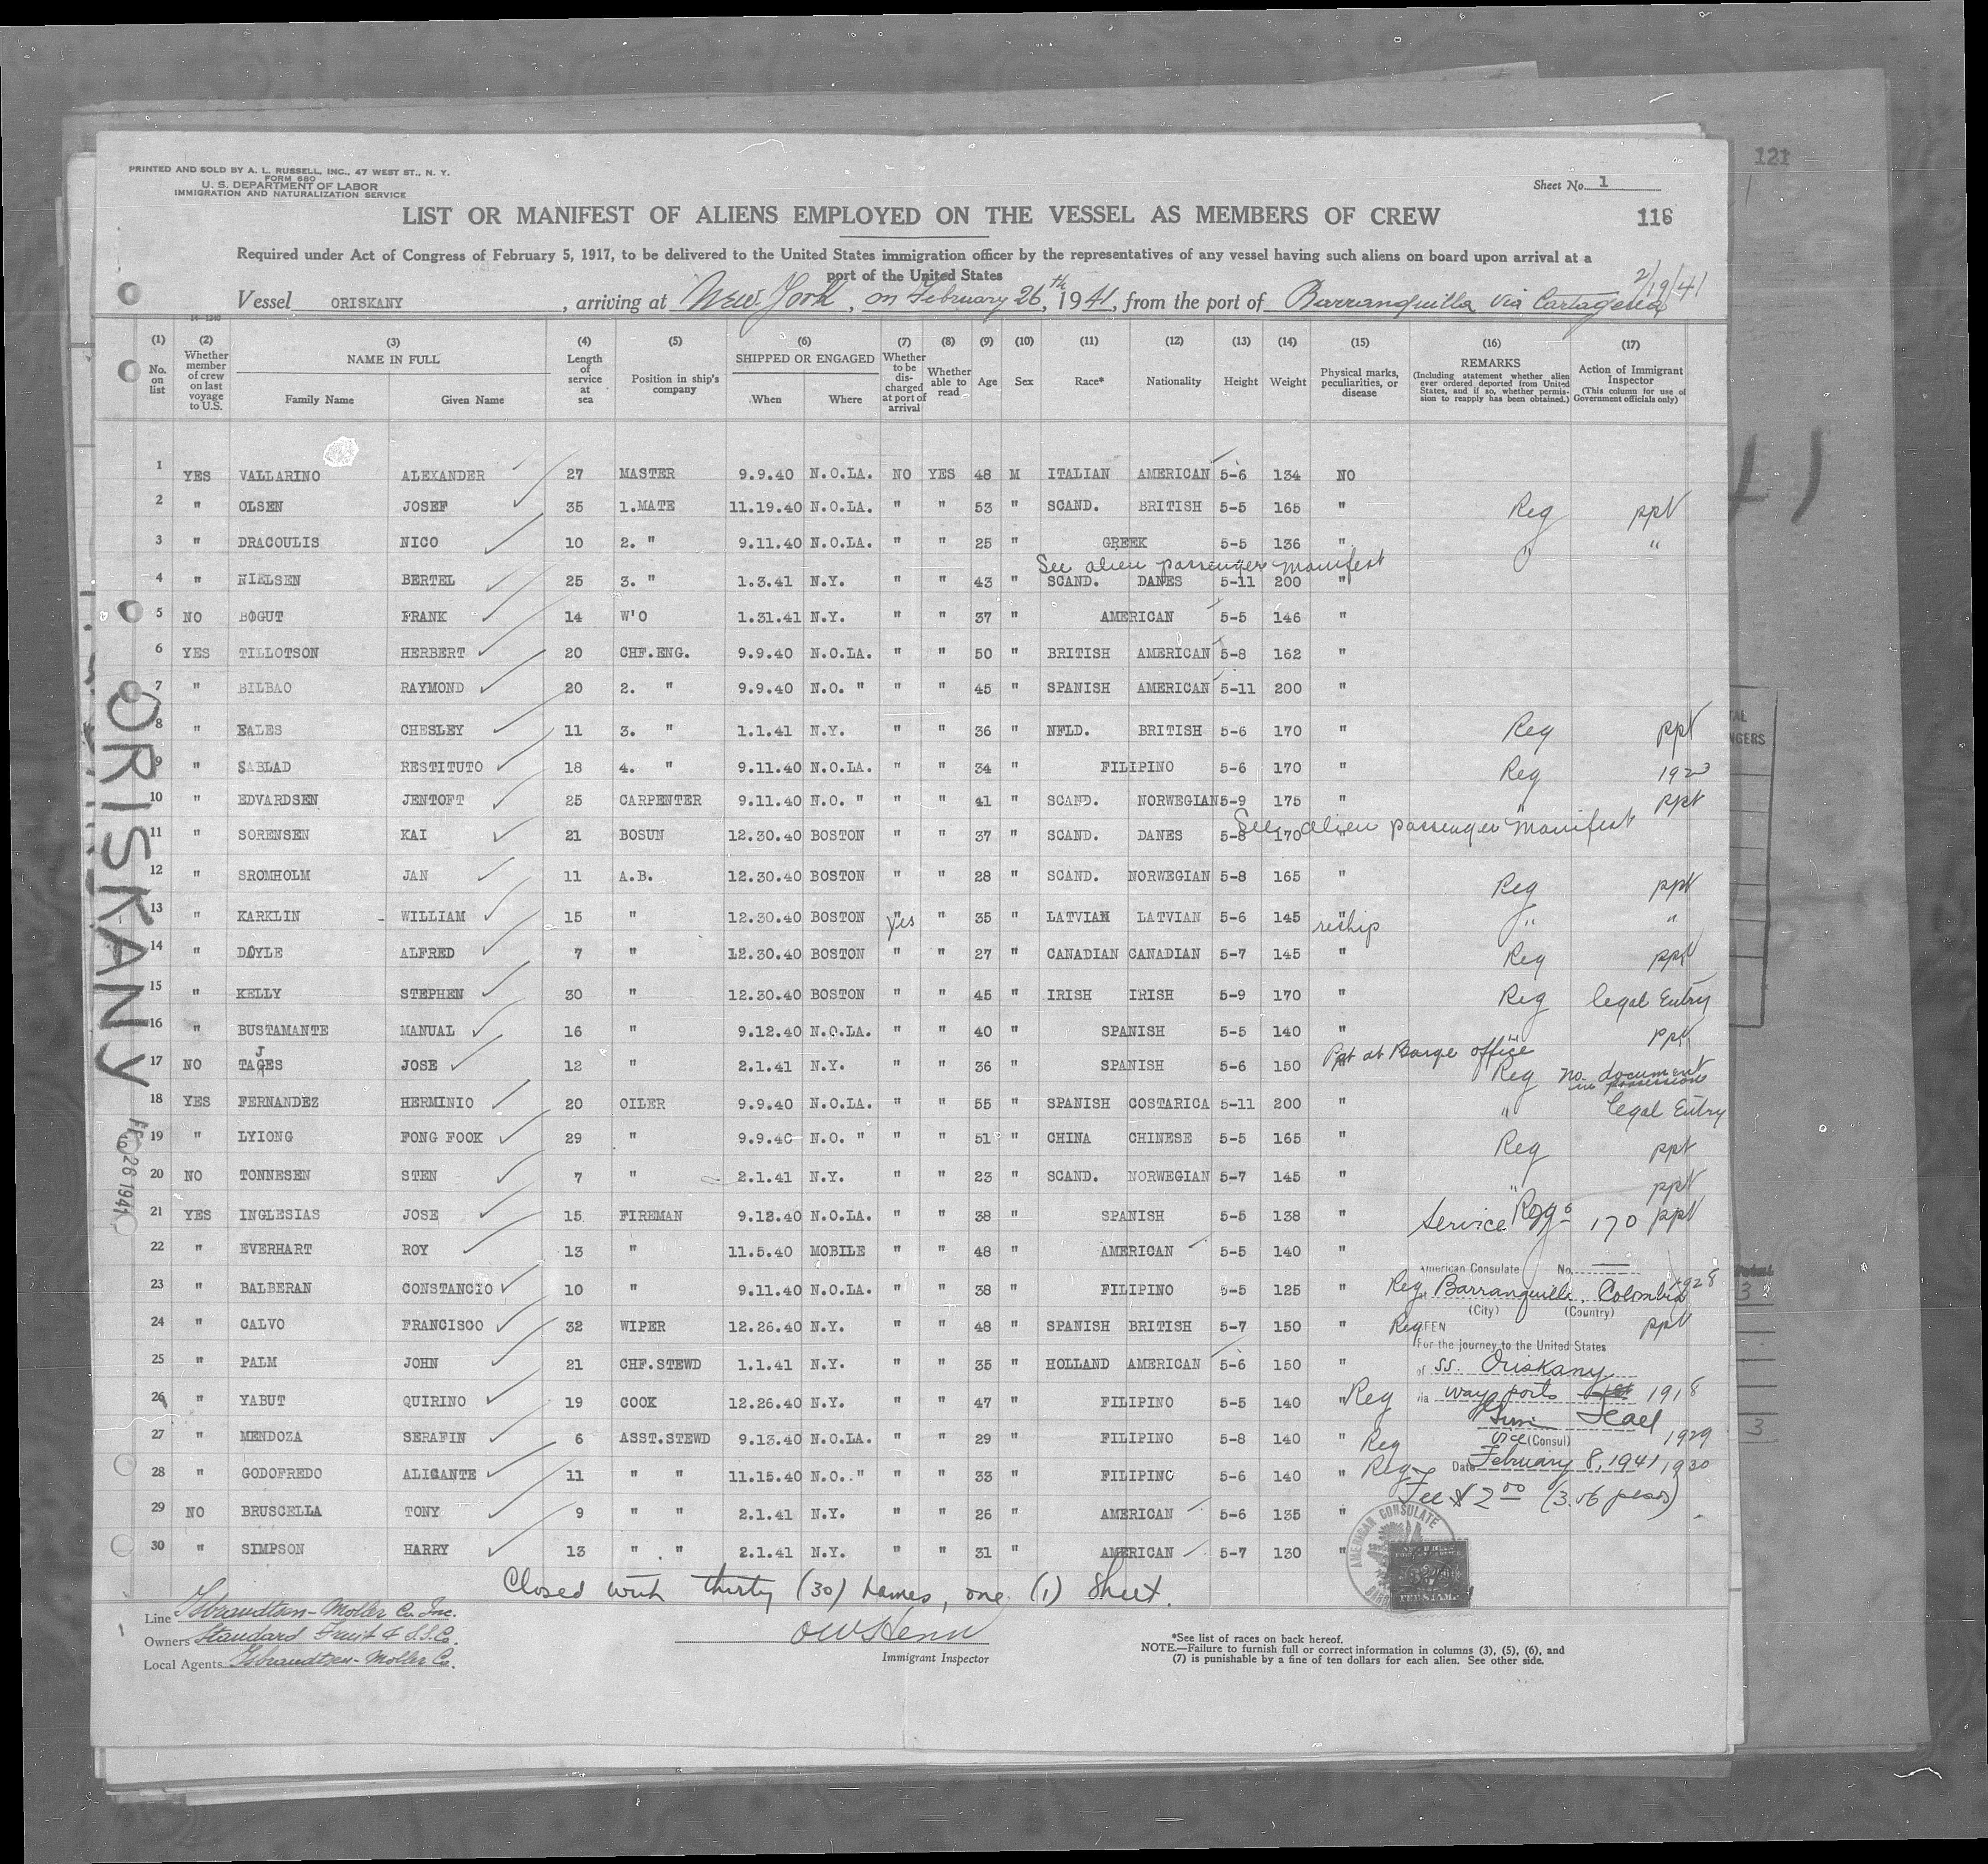 121
PRINTED AND SOLD BY A. L. RUSSELL, INC., 47 WEST ST., N. Y.
FORM 680
U. S. DEPARTMENT OF LABOR
IMMIGRATION AND NATURALIZATION SERVICE
Sheet No. 1
LIST OR MANIFEST OF ALIENS EMPLOYED ON THE VESSEL AS MEMBERS OF CREW
116
Required under Act of Congress of February 5, 1917, to be delivered to the United States immigration officer by the representatives of any vessel having such aliens on board upon arrival at a
port of the United States
2/19/41
Vessel ORISKANY, arriving at New York, on February 26th, 1941, from the port of Barranquilla via Cartagena
(1) No. on list
(2) Whether member of crew on last voyage to U.S.
(3) NAME IN FULL Family Name Given Name
(4) Length of service at sea
(5) Position in ship's company
(6) SHIPPED OR ENGAGED When Where
(7) Whether to be discharged at port of arrival
(8) Whether able to read
(9) Age
(10) Sex
(11) Race*
(12) Nationality
(13) Height
(14) Weight
(15) Physical marks, peculiarities, or disease
(16) REMARKS (Including statement whether alien ever ordered deported from United States, and if so, whether permission to reapply has been obtained.)
(17) Action of Immigrant Inspector (This column for use of Government officials only)
1 YES VALLARINO ALEXANDER 27 MASTER 9.9.40 N.O.LA. NO YES 48 M ITALIAN AMERICAN 5-6 134 NO
2 " OLSEN JOSEF 35 1.MATE 11.19.40 N.O.LA. " " 53 " SCAND. BRITISH 5-5 165 " Reg ppt
3 " DRACOULIS NICO 10 2. " 9.11.40 N.O.LA. " " 25 " GREEK 5-5 136 " " "
See alien passenger manifest
4 " NIELSEN BERTEL 25 3. " 1.3.41 N.Y. " " 43 " SCAND. DANES 5-11 200 "
5 NO BOGUT FRANK 14 W'O 1.31.41 N.Y. " " 37 " AMERICAN 5-5 146 "
6 YES TILLOTSON HERBERT 20 CHF.ENG. 9.9.40 N.O.LA. " " 50 " BRITISH AMERICAN 5-8 162 "
7 " BILBAO RAYMOND 20 2. " 9.9.40 N.O. " " " 45 " SPANISH AMERICAN 5-11 200 "
8 " EALES CHESLEY 11 3. " 1.1.41 N.Y. " " 36 " NFLD. BRITISH 5-6 170 " Reg ppt
9 " SABLAD RESTITUTO 18 4. " 9.11.40 N.O.LA. " " 34 " FILIPINO 5-6 170 " Reg 1923
10 " EDVARDSEN JENTOFT 25 CARPENTER 9.11.40 N.O. " " " 41 " SCAND. NORWEGIAN 5-9 175 " " ppt
See alien passenger manifest
11 " SORENSEN KAI 21 BOSUN 12.30.40 BOSTON " " 37 " SCAND. DANES 5-8 170 "
12 " SROMHOLM JAN 11 A.B. 12.30.40 BOSTON " " 28 " SCAND. NORWEGIAN 5-8 165 " Reg ppt
13 " KARKLIN - WILLIAM 15 " 12.30.40 BOSTON " yes " 35 " LATVIAN LATVIAN 5-6 145 " reship " "
14 " DOYLE ALFRED 7 " 12.30.40 BOSTON " " 27 " CANADIAN CANADIAN 5-7 145 " Reg ppt
15 " KELLY STEPHEN 30 " 12.30.40 BOSTON " " 45 " IRISH IRISH 5-9 170 " Reg legal Entry
16 " BUSTAMANTE MANUAL 16 " 9.12.40 N.O.LA. " " 40 " SPANISH 5-5 140 " " ppt
Ppt at Barge office
17 NO TAGES J JOSE 12 " 2.1.41 N.Y. " " 36 " SPANISH 5-6 150 " Reg no document in possession
18 YES FERNANDEZ HERMINIO 20 OILER 9.9.40 N.O.LA. " " 55 " SPANISH COSTARICA 5-11 200 " " legal Entry
19 " LYIONG FONG FOOK 29 " 9.9.40 N.O. " " " 51 " CHINA CHINESE 5-5 165 " Reg ppt
20 NO TONNESEN STEN 7 " 2.1.41 N.Y. " " 23 " SCAND. NORWEGIAN 5-7 145 " " ppt
21 YES INGLESIAS JOSE 15 FIREMAN 9.12.40 N.O.LA. " " 38 " SPANISH 5-5 138 " Reg ppt
Service No 170
22 " EVERHART ROY 13 " 11.5.40 MOBILE " " 48 " AMERICAN 5-5 140 "
American Consulate No.
23 " BALBERAN CONSTANCIO 10 " 9.11.40 N.O.LA. " " 38 " FILIPINO 5-5 125 " Reg 1928
at Barranquilla, Colombia
(City) (Country)
24 " CALVO FRANCISCO 32 WIPER 12.26.40 N.Y. " " 48 " SPANISH BRITISH 5-7 150 " Reg ppt
For the journey to the United States
25 " PALM JOHN 21 CHF.STEWD 1.1.41 N.Y. " " 35 " HOLLAND AMERICAN 5-6 150 "
of SS. Oriskany
26 " YABUT QUIRINO 19 COOK 12.26.40 N.Y. " " 47 " FILIPINO 5-5 140 " Reg 1918
via way ports
Seal
27 " MENDOZA SERAFIN 6 ASST.STEWD 9.13.40 N.O.LA. " " 29 " FILIPINO 5-8 140 " Reg 1929
Vice (Consul)
28 " GODOFREDO ALICANTE 11 " " 11.15.40 N.O. " " " 33 " FILIPINO 5-6 140 " Reg 1930
Date February 8, 1941
Fee $ 2.00 (3.56 pesos)
29 NO BRUSCELLA TONY 9 " " 2.1.41 N.Y. " " 26 " AMERICAN 5-6 135 "
30 " SIMPSON HARRY 13 " " 2.1.41 N.Y. " " 31 " AMERICAN 5-7 130 "
AMERICAN CONSULATE
FEE STAMP
Closed with thirty (30) names, one (1) Sheet.
Line Isbrandtsen-Moller Co. Inc.
Owners Standard Fruit & S.S. Co.
Local Agents Isbrandtsen-Moller Co.
Immigrant Inspector
*See list of races on back hereof.
NOTE.—Failure to furnish full or correct information in columns (3), (5), (6), and
(7) is punishable by a fine of ten dollars for each alien. See other side.
ORISKANY
FEB 26 1941